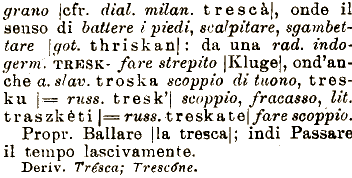 grano |cfr. dial. milan. trescà|, onde il
senso di battere i piedi, scalpitare, sgambet-
tare |got. thriskan|: da una rad. indo-
germ. TRESK- fare strepito |Kluge|, ond'an-
che a. slav. troska scoppio di tuono, tres-
ku |= russ. tresk'| scoppio, fracasso, lit.
traszkèti |= russ. treskate| fare scoppio.
Propr. Ballare |la tresca|; indi Passare
il tempo lascivamente.
Deriv. Trésca; Trescóne.